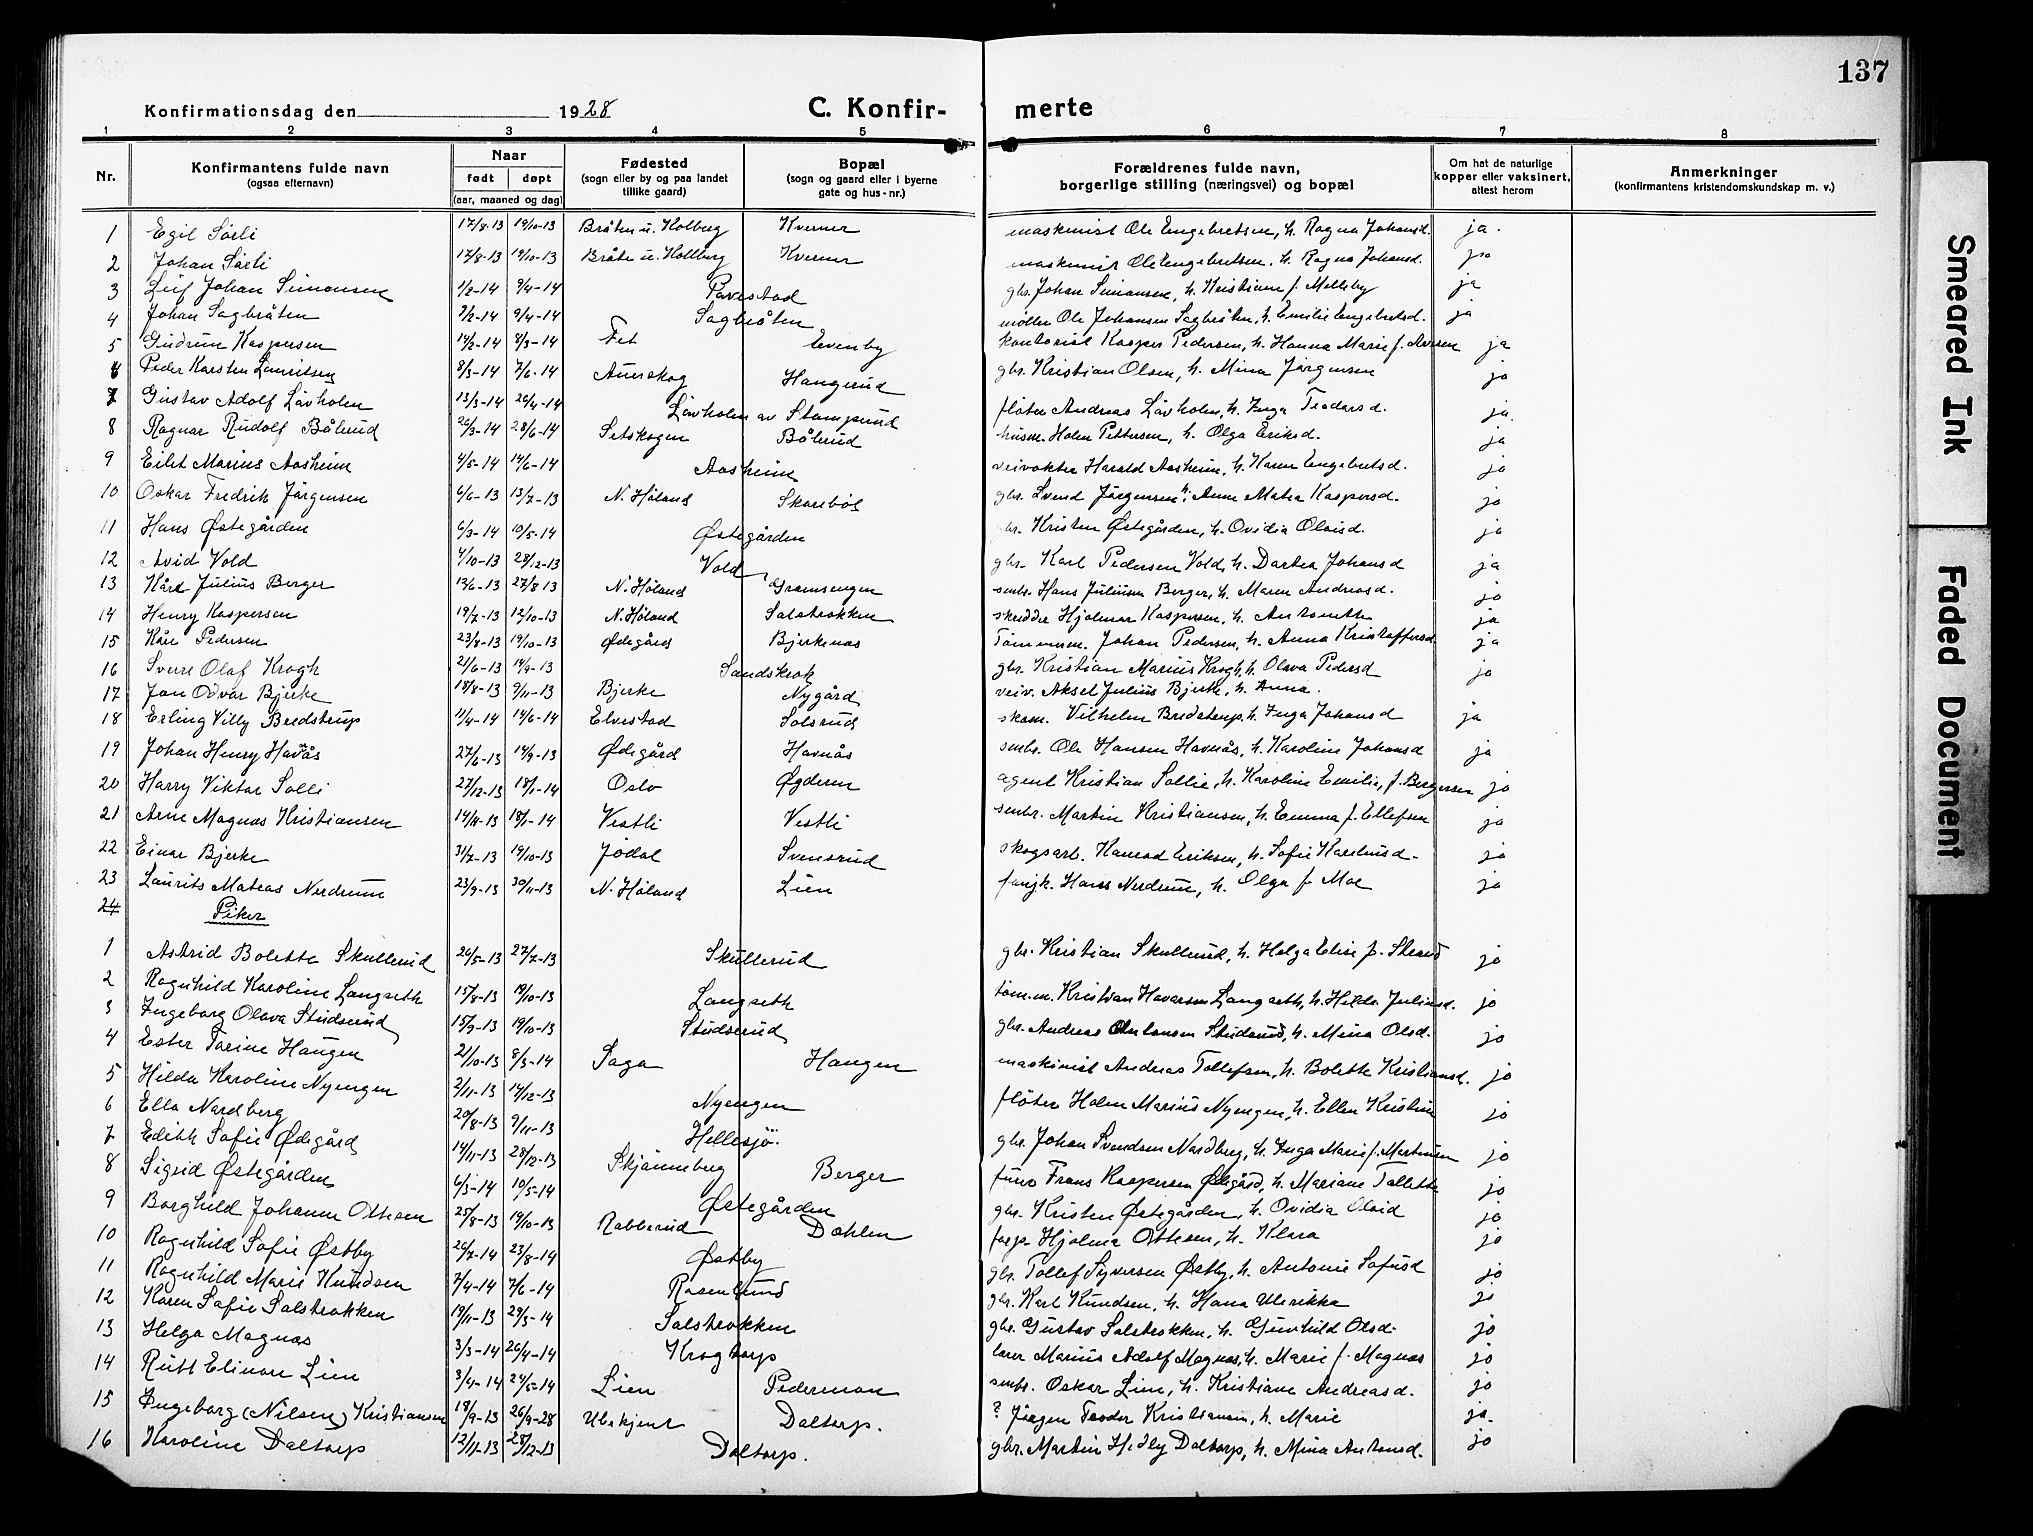 137
Konfirmationsdag den 1928 C. Konfirmerte
1 2 3 4 5 6 7 8
Nr. Konfirmantens fulde navn (ogsaa efternavn) Naar født døpt (aar, maaned og dag) Fødested (sogn eller by og paa landet tillike gaard) Bopæl (sogn og gaard eller i byerne gate og hus-nr.) Forældrenes fulde navn, borgerlige stilling (næringsvei) og bopæl Om hat de naturlige kopper eller vaksinert, attest herom Anmerkninger (konfirmantens kristendomskundskap m. v.)
1 Egil Sörli 17/8-13 19/10-13 Bråten u. Holberg Kverner maskinist Ole Engebretsen, h. Ragna Johansd. ja.
2 Johan Sörli 17/8-13 19/10-13 Bråte u. Hollberg Kverner maskinist Ole Engebretsen, h. Ragna Johansd. ja
3 Leif Johan Simonsen 1/2-14 9/4-14 Pavestad gbr. Johan Simonsen, h. Kristiane f. Melleby ja
4 Johan Sagbråten 7/2-14 9/4-14 Sagbråten möller Ole Johansen Sagbråten, h. Emilie Engebretsd. ja
5 Gudrun Kaspersen 14/2-14 8/3-14 Fet Evenby kontorist Kasper Pedersen, h. Hanna Marie f. ja
6 Peder Karsten Lauritsen 8/3-14 7/6-14 Aurskog Haugerud gbr. Kristian Olsen, h. Mina Jörgensen ja
7 Gustav Adolf Lövholen 13/3-14 26/4-14 Lövholen av Stomperud flöter Andreas Lövholen, h. Inga Teodorsd. ja.
8 Ragnar Rudolf Bålerud 26/3-14 28/6-14 Setskogen Bålerud husm. Holen Pettersen, h. Olga Eriksd. ja
9 Eilet Marius Aasheim 4/5-14 14/6-14 Aasheim veivokter Harald Aasheim, h. Karen Engebretsd. ja
10 Oskar Fredrik Jörgensen 6/6-13 13/7-13 N. Höland Skareböl gbr. Svend Jörgensen, h. Anne Matea Kaspersd. ja
11 Hans Østegården 6/3-14 10/5-14 Østegården gbr. Kristen Østegården, h. Ovidia Olausd. ja
12 Avid Vold 4/10-13 28/12-13 Vold gbr. Karl Pedersen Vold, h. Dortea Johansd ja
13 Kåre Julius Berger 13/6-13 27/8 13 N. Höland Gramsengen smbr. Hans Juliusen Berger, h. Maren Andreasd. ja
14 Henry Kaspersen 19/7-13 12/10-13 N. Höland Salstrokken skredder Hjalmar Kaspersen, h. Antonette ja
15 Kåre Pedersen 23/8-13 19/10-13 Ødegård Bjerknes Tömmerm. Johan Pedersen, h. Anna Kristoffersd. ja
16 Sverre Olaf Krogh 21/6-13 14/9-13 Sandskrok gbr. Kristian Marius Krogh, h. Olava Pedersd ja
17 Jan Odvar Bjerke 18/8-13 9/11-13 Bjerke Nygård veiv. Aksel Julius Bjerke, h. Anna.
18 Erling Villy Bredstrup 11/4-14 14/6-14 Elvestad Solsrud skom. Vilhelm Bredstrup, h. Inga Johansd ja
19 Johan Henry Havnås 27/6-13 14/9-13 Ødegård Havnås smbr. Ole Hansen Havnås, h. Karoline Johansd ja
20 Harry Viktor Solli 27/12-13 18/1-14 Oslo Øgderen agent Kristian Sollie, h. Karoline Emilie, f. Bergersen ja
21 Arne Magnus Kristiansen 14/11-13 18/1-14 Vestli Vestli smbr. Martin Kristiansen, h. Emma f. Ellefsen ja
22 Einar Bjerke 31/7-13 19/10-13 Jödal Svensrud skogsarb. Konrad Eriksen, h. Sofie ja
23 Laurits Mateas Nerdrum 23/9-13 30/11-13 N. Höland Lien fanjk. Hans Nerdrum, h. Olga f. Moe ja
24 Piker
1 Astrid Bolette Skullerud 26/5-13 27/7-13 Skullerud gbr. Kristian Skullerud, h. Helga Elise f. Strand ja
2 Ragnhild Karoline Langseth 15/8-13 19/10-13 Langseth töm.m. Kristian Havarsen Langseth, h. Hilda Juliusd. ja
3 Ingeborg Olava Studserud 15/9-13 19/10-13 Studserud gbr. Andreas Antonsen Studserud, h. Mina Olsd. ja
4 Ester Torine Haugen 21/10-13 8/3-14 Saga Haugen maskinist Andreas Tollefsen, h. Bolette Kristiansd. ja
5 Hilda Karoline Nyengen 2/11-13 14/12-13 Nyengen flöter Holen Marius Nyengen, h. Ellen Kristine ja
6 Ella Nordberg 20/8-13 9/11-13 Hellesjö. gbr. Johan Svendsen Nordberg, h. Inga Marie f. Martinsen ja
7 Edith Sofie Ødegård 14/11-13 28/12-13 Skjönneberg Berger furer Frans Kaspersen Ødegård, h. Mariane Tollette ja
8 Sigrid Østegården 6/3-14 10/5-14 Østegården gbr. Kristen Østegården, h. Ovidia Olaisd ja
9 Borghild Johanne Ottesen 25/8-13 19/10-13 Rabberud Dahlen forp. Hjalmar Ottesen, h. Klara ja
10 Ragnhild Sofie Østby 26/7-14 23/8-14 Østby gbr. Tollef Syversen Østby, h. Antonie Sofusd ja
11 Ragnhild Marie Knudsen 7/4-14 7/6-14 Rosenlund gbr. Karl Knudsen, h. Hana Ulerikke ja
12 Karen Sofie Salstrokken 19/11-13 29/3-14 Salstrokken gbr. Gustav Salstrokken, h. Gunhild Olsd. ja
13 Helga Magnæs 3/3-14 26/4-14 Krogtorp lærer Marius Adolf Magnæs, h. Marie f. Magnæs ja
14 Rutt Elinore Lien 3/4-14 24/5-14 Lien Pedermon smbr. Oskar Lien, h. Kristiane Andreasd. ja
15 Ingeborg (Nilsen) Kristiansen 18/9-13 26/9-28 Ubekjent Daltorp. ? Jörgen Teodor Kristiansen, h. Marie ja.
16 Karoline Daltorp 12/11-13 28/12-13 Daltorp. gbr. Martin Hedly Daltorp, h. Mina Antonsd. ja
Smeared Ink
Faded Document